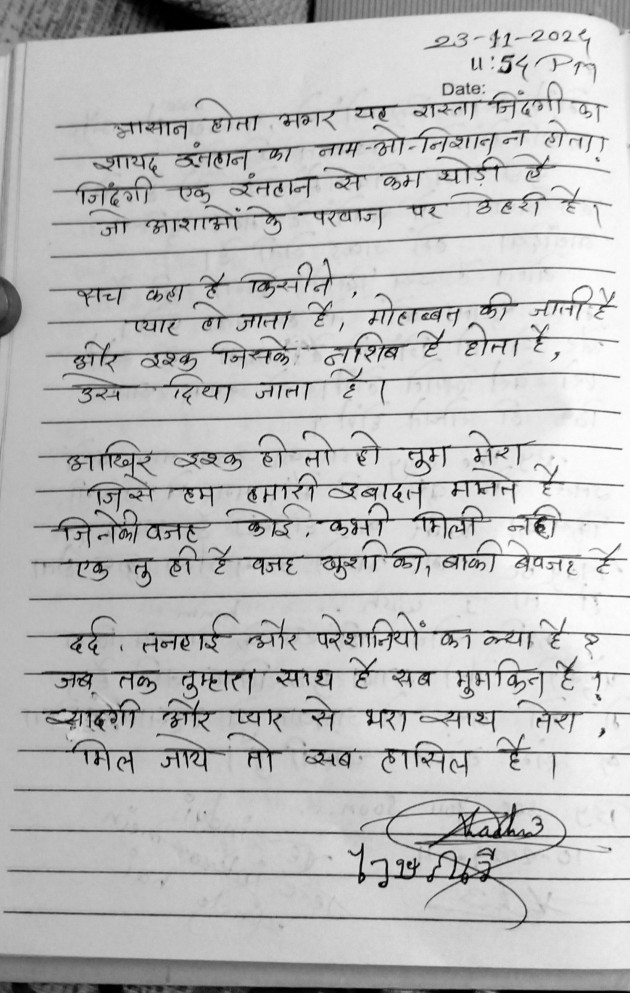 23-11-2024
11:54 PM
Date:
आसान होता अगर यह रास्ता जिंदगी का
शायद इंतहान का नाम-ओ-निशान न होता।
जिंदगी एक इंतहान से कम थोड़ी है
जो आशाओं के परवाज पर ठेहरी है।
सच कहा है किसीने,
प्यार हो जाता है, मोहब्बत की जाती है
और इश्क जिसके नशिब है होता है,
उसे दिया जाता है।
आखिर इश्क हो तो हो तुम मेरा
जिसे हम हमारी इबादत मानते है
जिनेकी वजह कोई कभी मिली नही
एक तु ही है वजह खुशी की, बाकी बेवजह है
दर्द, तनहाई और परेशानियों का क्या है ?
जब तक तुम्हारा साथ है सब मुमकिन है।
सादगी और प्यार से भरा साथ तेरा,
मिल जाये तो सब हासिल है।